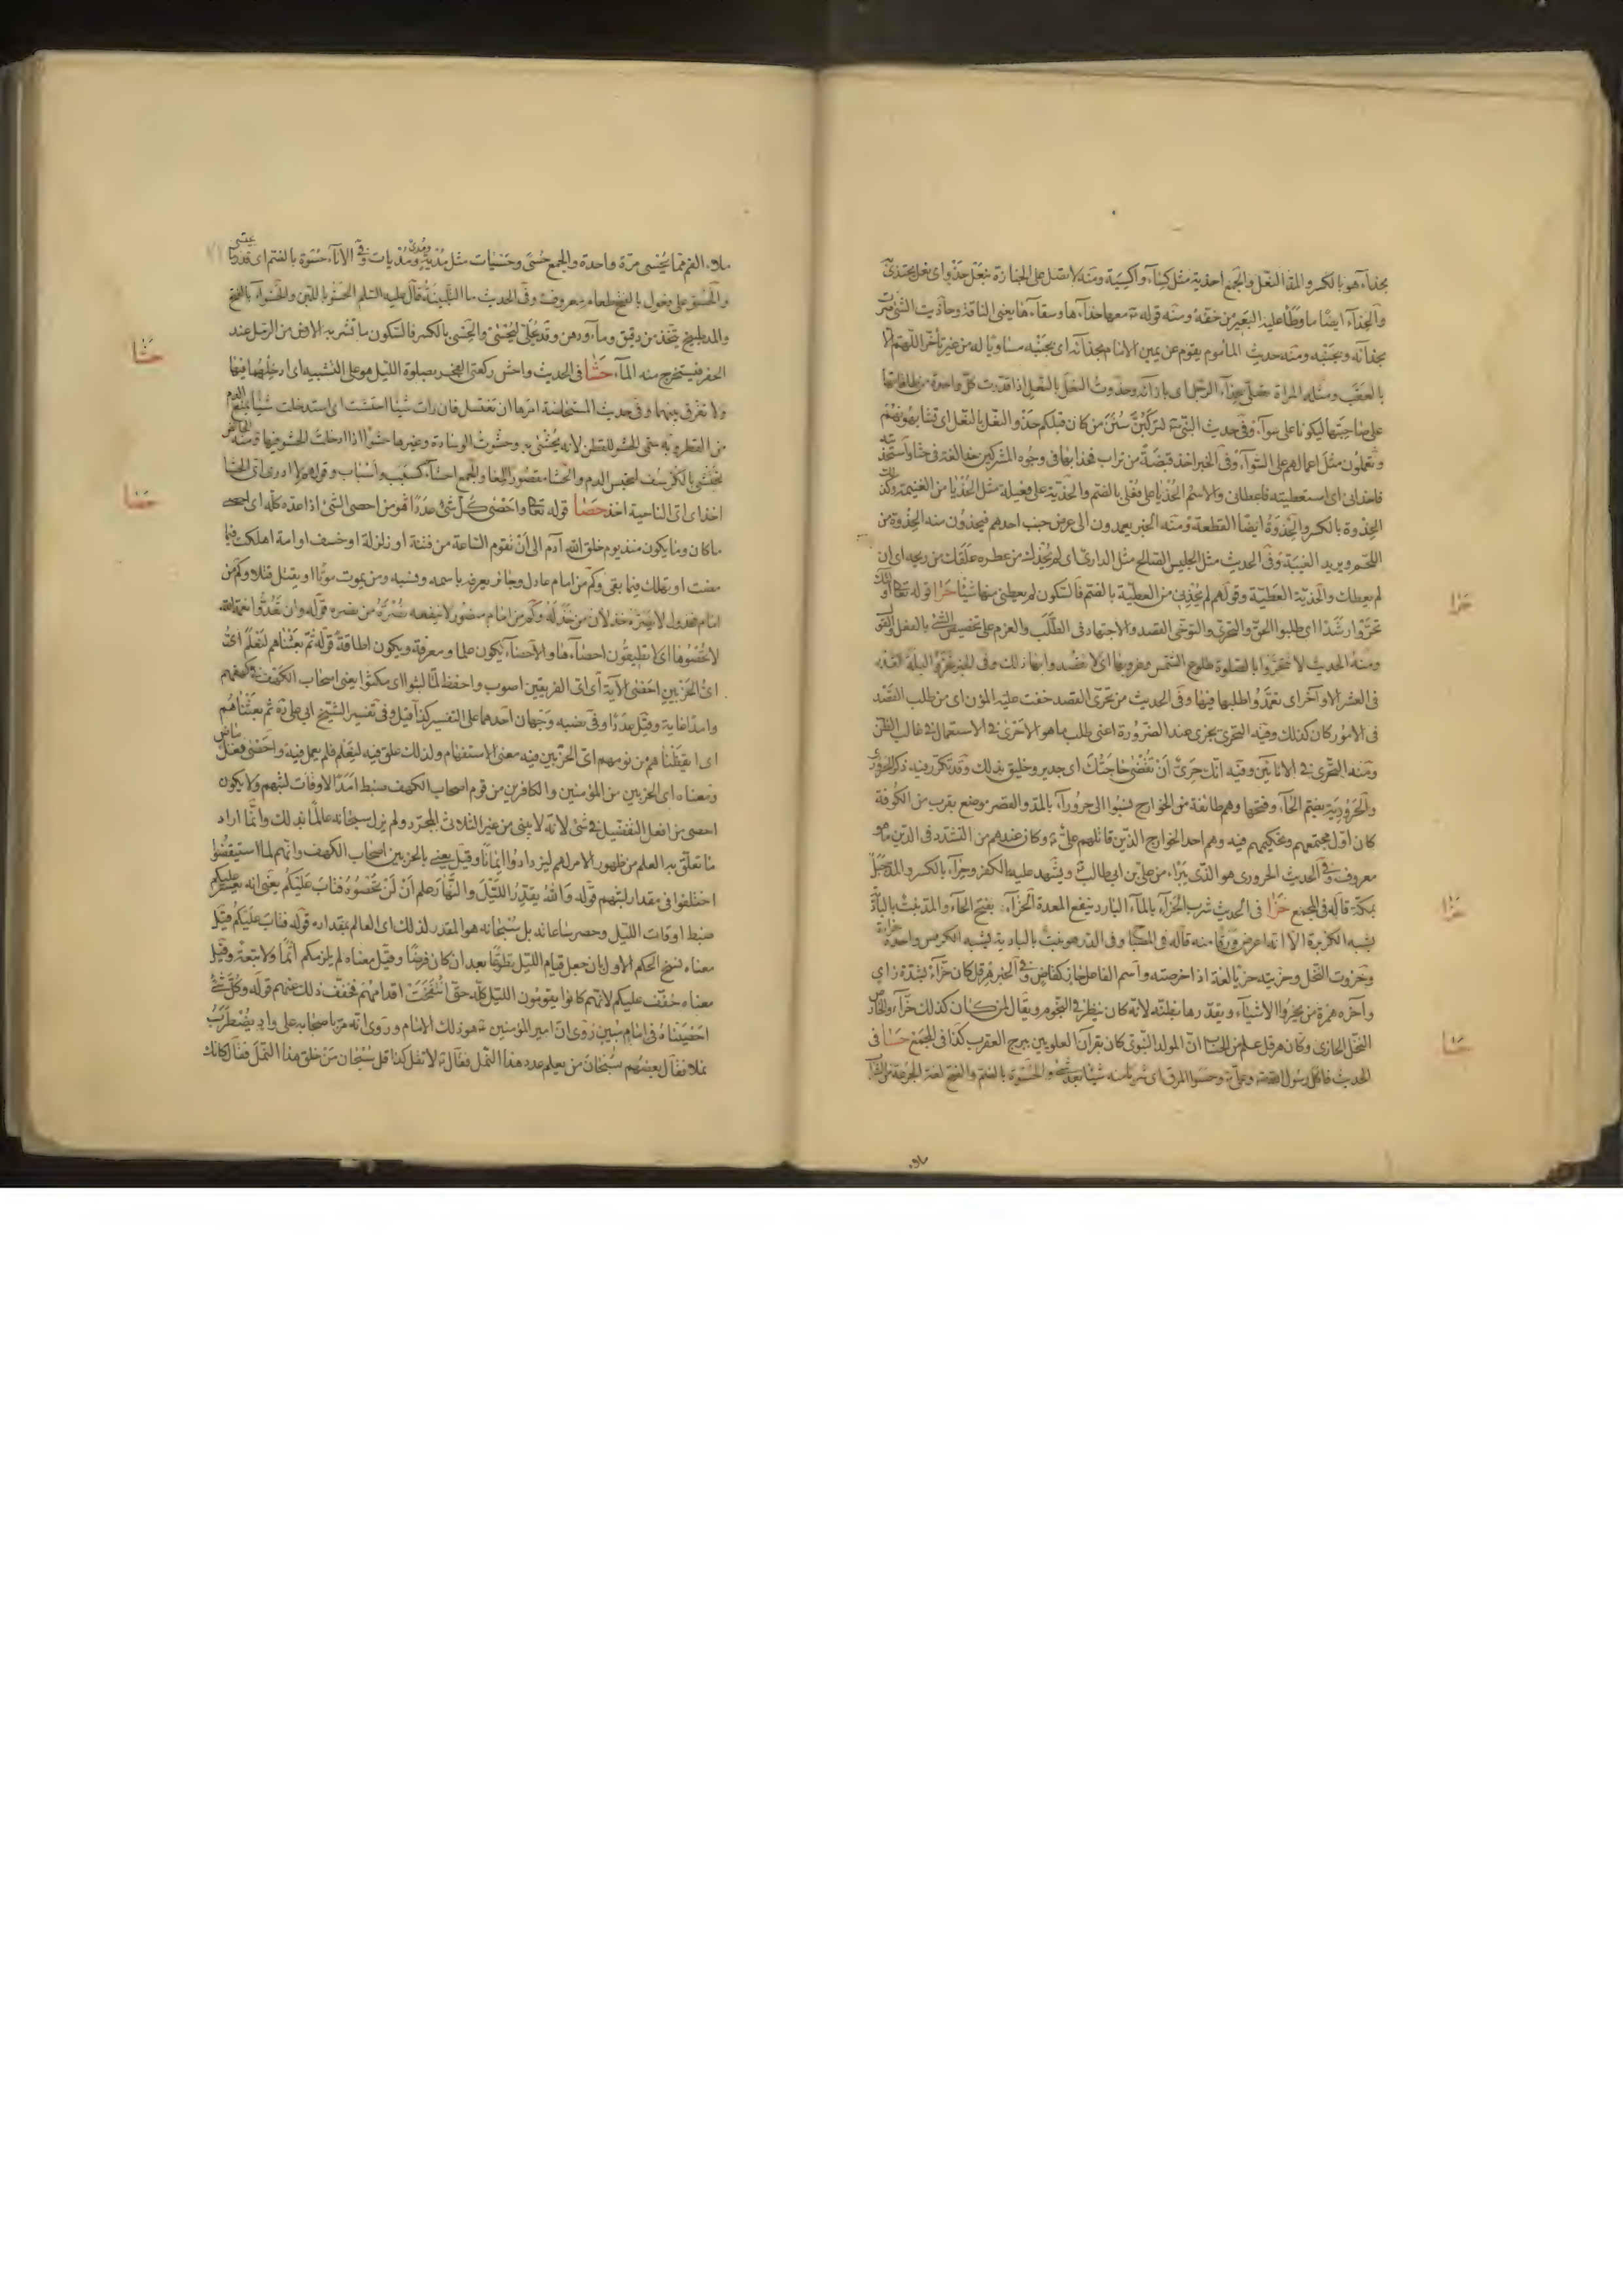 بحذاء هو بالكسر والمد النعل والجمع احذية مثل كساء واكسية ومنه لا تصل على الجنازة بنعل حذو اى نعل يحتذى
والحذاء ايضا ما وطأ عليه البعير من خفه ومنه قوله معها حذاءها وسقاءها يعنى الناقة وحاذيت الشئ صرت
بحذائه وبجنبه ومنه حديث الماموم يقوم عن يمين الامام بحذائه اى بجنبه مساويا له من غير تأخر اللهم الا
بالعقب ومثله المراة تصلى بحذاء الرجل اى بازائه وحذوت النعل بالنعل اذا قدرت كل واحدة من طاقاتها
على صاحبتها ليكونا على سواء وفى حديث النبى لتركبن سنن من كان قبلكم حذو النعل بالنعل اى تشابهونهم
وتعملون مثل اعمالهم على السواء وفى الخبر اخذ قبضة من تراب فحذا بها فى وجوه المشركين
فاحذانى اى استعطيته فاعطانى والاسم الحذيا على فعلى بالضم والحذية على فعيلة مثل الحذيا من الغنيمة وكذلك
الحذوة بالكسر والحذوة ايضا القطعة ومنه الخبر يعمدون الى عرض جنب احدهم فيحذون منه الحذوة من
اللحم ويريد الغيبة وفى الحديث مثل الجليس الصالح مثل الدارى ان لم يحذك من عطره علقك من ريحه اى ان
لم يعطك والحذية العطية وقولهم لم يحذنى من العطية بالضم فالسكون لم يعطنى منها شيئا حرا قوله تعالى اولئك
تحروا رشدا اى طلبوا الحق والتحرى والتوخى القصد والاجتهاد فى الطلب والعزم على تخصيص الشئ بالفعل والقول
ومنه الحديث لا تتحروا بالصلوة طلوع الشمس وغروبها اى لا تقصدوا بها ذلك وفى الخبر تحروا ليلة القدر
فى العشر الاواخر اى تعمدوا طلبها فيها وفى الحديث من تحرى القصد خفت عليه المؤن اى من طلب القصد
فى الامور كان كذلك وفيه التحرى يجزى عند الضرورة اعنى طلب ما هو الاحرى فى الاستعمال فى غالب الظن
ومنه التحرى فى الانائين وفيه انك حرى ان تقضى حاجتك اى جدير وخليق بذلك وقد تكرر فيه ذكر الحرورى
والحرورية بضم الحاء وفتحها وهم طائفة من الخوارج نسبوا الى حروراء بالمد والقصر موضع بقرب من الكوفة
كان اول مجتمعهم وتحكيمهم فيه وهم احد الخوارج الذين قاتلهم على وكان عندهم من التشدد فى الدين ما هو
معروف وفى الحديث الحرورى هو الذى يتبراء من على بن ابى طالب ويشهد عليه بالكفر وحراء بالكسر والمد جبل
بمكة قاله فى المجمع حزا فى الحديث شرب الحزاء بالماء البارد ينفع المعدة الحزاء بفتح الحاء والمد نبت بالبادية
يشبه الكزبرة الا انه اعرض ورقا منه قاله فى الصحاح وفى الدر هو نبت بالبادية يشبه الكرفس واحده حزاءة
وحزوت النخل وحزيته حزيا لغة اذا خرصته واسم الفاعل حاز كقاض وفى الخبر هرقل كان حزاء بشدة زاى
واخره همزة من يحزوا الاشياء ويقدرها بظنه لانه كان ينظر فى النجوم ويقال لمن كان كذلك حزاء ولخارص
النخل الحازى وكان هرقل علم من الحساب ان المولد النبوى كان بقران العلويين ببرج العقرب كذا فى المجمع حسا فى
الحديث فاكل رسول الله وعلى وحسوا المرق اى شربا منه شيئا بعد شئ والحسوة بالضم والفتح لغة الجرعة من الشراب
ملاء
حرا
حزا
حسا
ملاء الفم مما يحسى مرة واحدة والجمع حسى وحسيات مثل مدية ومدى ومديات وفى الاناء حسوة بالضم اى قدر ما يحتسى
والحسو على فعول بالفتح طعام معروف وفى الحديث ما التلبينة قال عليه السلم الحسو باللبن والحسواء بالفتح
والمد طبيخ يتخذ من دقيق وماء ودهن وقد يحلى ليحتسى والحسى بالكسر فالسكون ما تشربه الارض من الرمل عند
الحفر فيستخرج منه الماء حشا فى الحديث واحش ركعتى الفجر بصلوة الليل هو على التشبيه اى ادخلهما فيها
ولا تفرق بينهما وفى حديث المستحاضة امرها ان تغتسل فان رات شيئا احتشت اى استدخلت شيئا يمنع الدم
من القطر وبه سمى الحشو للقطن لانه يحشى به وحشوت الوسادة وغيرها حشوا اذا ادخلت الحشو فيها ومنه الحائض
تحتشى بالكرسف لتحبس الدم والحشا مقصور المعا والجمع احشاء كسبب واسباب وقولهم لا ادرى اى الحشا
اخذ اى اى الناحية اخذ حصا قوله تعالى واحصى كل شئ عددا هو من احصى الشئ اذا عده كله اى احصى
ما كان وما يكون منذ يوم خلق الله آدم الى ان تقوم الساعة من فتنة او زلزلة او خسف او امة اهلكت فيما
مضت او تهلك فيما بقى وكم من امام عادل وجائر يعرفه باسمه ونسبه ومن يموت موتا او يقتل قتلا وكم من
امام مخذول لا يضره خذلان من خذله وكم من امام منصور لا ينفعه نصرة من نصره قوله وان تعدوا نعمة الله
لا تحصوها اى لا تطيقون احصاءها والاحصاء يكون علما ومعرفة ويكون اطاقة قوله ثم بعثناهم لنعلم اى
اى الحزبين احصى الاية اى اى الفريقين اصوب واحفظ لما لبثوا اى مكثوا يعنى اصحاب الكهف فى كهفهم
وامدا غاية وقيل عددا وفى نصبه وجهان احدهما على التفسير كذا قيل وفى تفسير الشيخ ابى على ثم بعثناهم
اى ايقظناهم من نومهم اى الحزبين فيه معنى الاستفهام ولذلك علق فيه لنعلم فلم يعمل فيه واحصى فعل ماض
ومعناه اى الحزبين من المؤمنين والكافرين من قوم اصحاب الكهف ضبط امدا لاوقات لبثهم ولا يكون
احصى من افعل التفضيل فى شئ لانه لا يبنى من غير الثلاث المجرد ولم يزل سبحانه عالما بذلك وانما اراد
ما تعلق به العلم من ظهور الامر لهم ليزدادوا ايمانا وقيل يعنى بالحزبين اصحاب الكهف وانهم لما استيقظوا
اختلفوا فى مقدار لبثهم قوله والله يقدر الليل والنهار علم ان لن تحصوه فتاب عليكم يعنى انه يعسر عليكم
ضبط اوقات الليل وحصر ساعاته بل سبحانه هو المقدر لذلك اى العالم بمقداره قوله فتاب عليكم قيل
معناه نسخ الحكم الاول بان جعل قيام الليل تطوعا بعد ان كان فرضا وقيل معناه لم يلزمكم اثما ولا تبعة وقيل
معناه خفف عليكم لانهم كانوا يقومون الليل كله حتى انتفخت اقدامهم فخفف ذلك عنهم قوله وكل شئ
احصيناه فى امام مبين روى ان امير المؤمنين هو ذلك الامام وروى انه مر باصحابه على واد يضطرب
نملا فقال بعضهم سبحان من يعلم عدد هذا النمل فقال لا تقل كذا قل سبحان من خلق هذا النمل فقال كانك
حشا
حصا